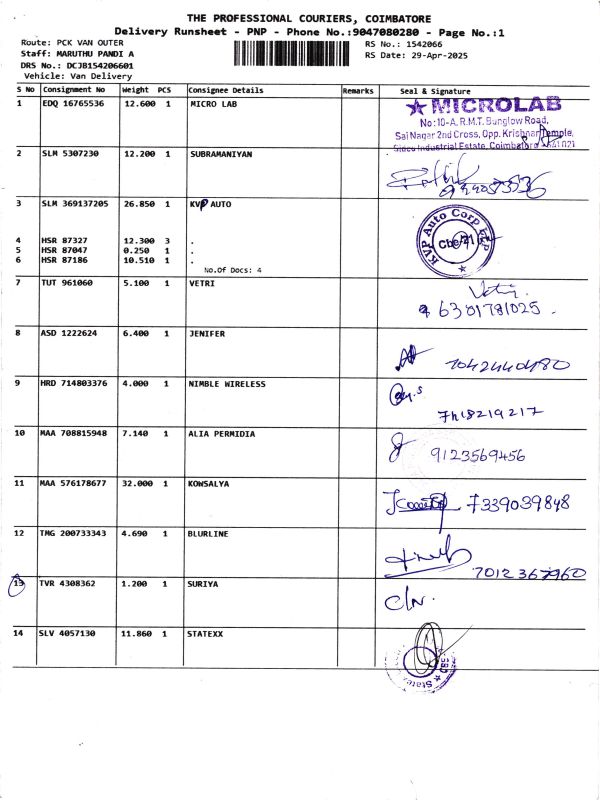 THE PROFESSIONAL COURIERS, COIMBATORE
Delivery Runsheet - PNP - Phone No.:9047080280 - Page No.:1
Route: PCK VAN OUTER
RS No.: 1542066
Staff: MARUTHU PANDI A
RS Date: 29-Apr-2025
DRS No.: DCJB154206601
Vehicle: Van Delivery
S No Consignment No Weight PCS Consignee Details Remarks Seal & Signature
1 EDQ 16765536 12.600 1 MICRO LAB
★ MICROLAB
No:10-A, R.M.T. Bunglow Road,
Sai Nagar 2nd Cross, Opp. Krishnar Temple,
Sidco Industrial Estate, Coimbatore 641 021
2 SLM 5307230 12.200 1 SUBRAMANIYAN
3 SLM 369137205 26.850 1 KVP AUTO
KVP Auto Corp LLP
Cbe-21
4 HSR 87327 12.300 3 .
5 HSR 87047 0.250 1 .
6 HSR 87186 10.510 1 .
No.Of Docs: 4
7 TUT 961060 5.100 1 VETRI
Vetri
6301781025
8 ASD 1222624 6.400 1 JENIFER
7042440480
9 HRD 714803376 4.000 1 NIMBLE WIRELESS
7418219217
10 MAA 708815948 7.140 1 ALIA PERMIDIA
9123569456
11 MAA 576178677 32.000 1 KOWSALYA
7339039848
12 TMG 200733343 4.690 1 BLURLINE
7012367960
13 TVR 4308362 1.200 1 SURIYA
14 SLV 4057130 11.860 1 STATEXX